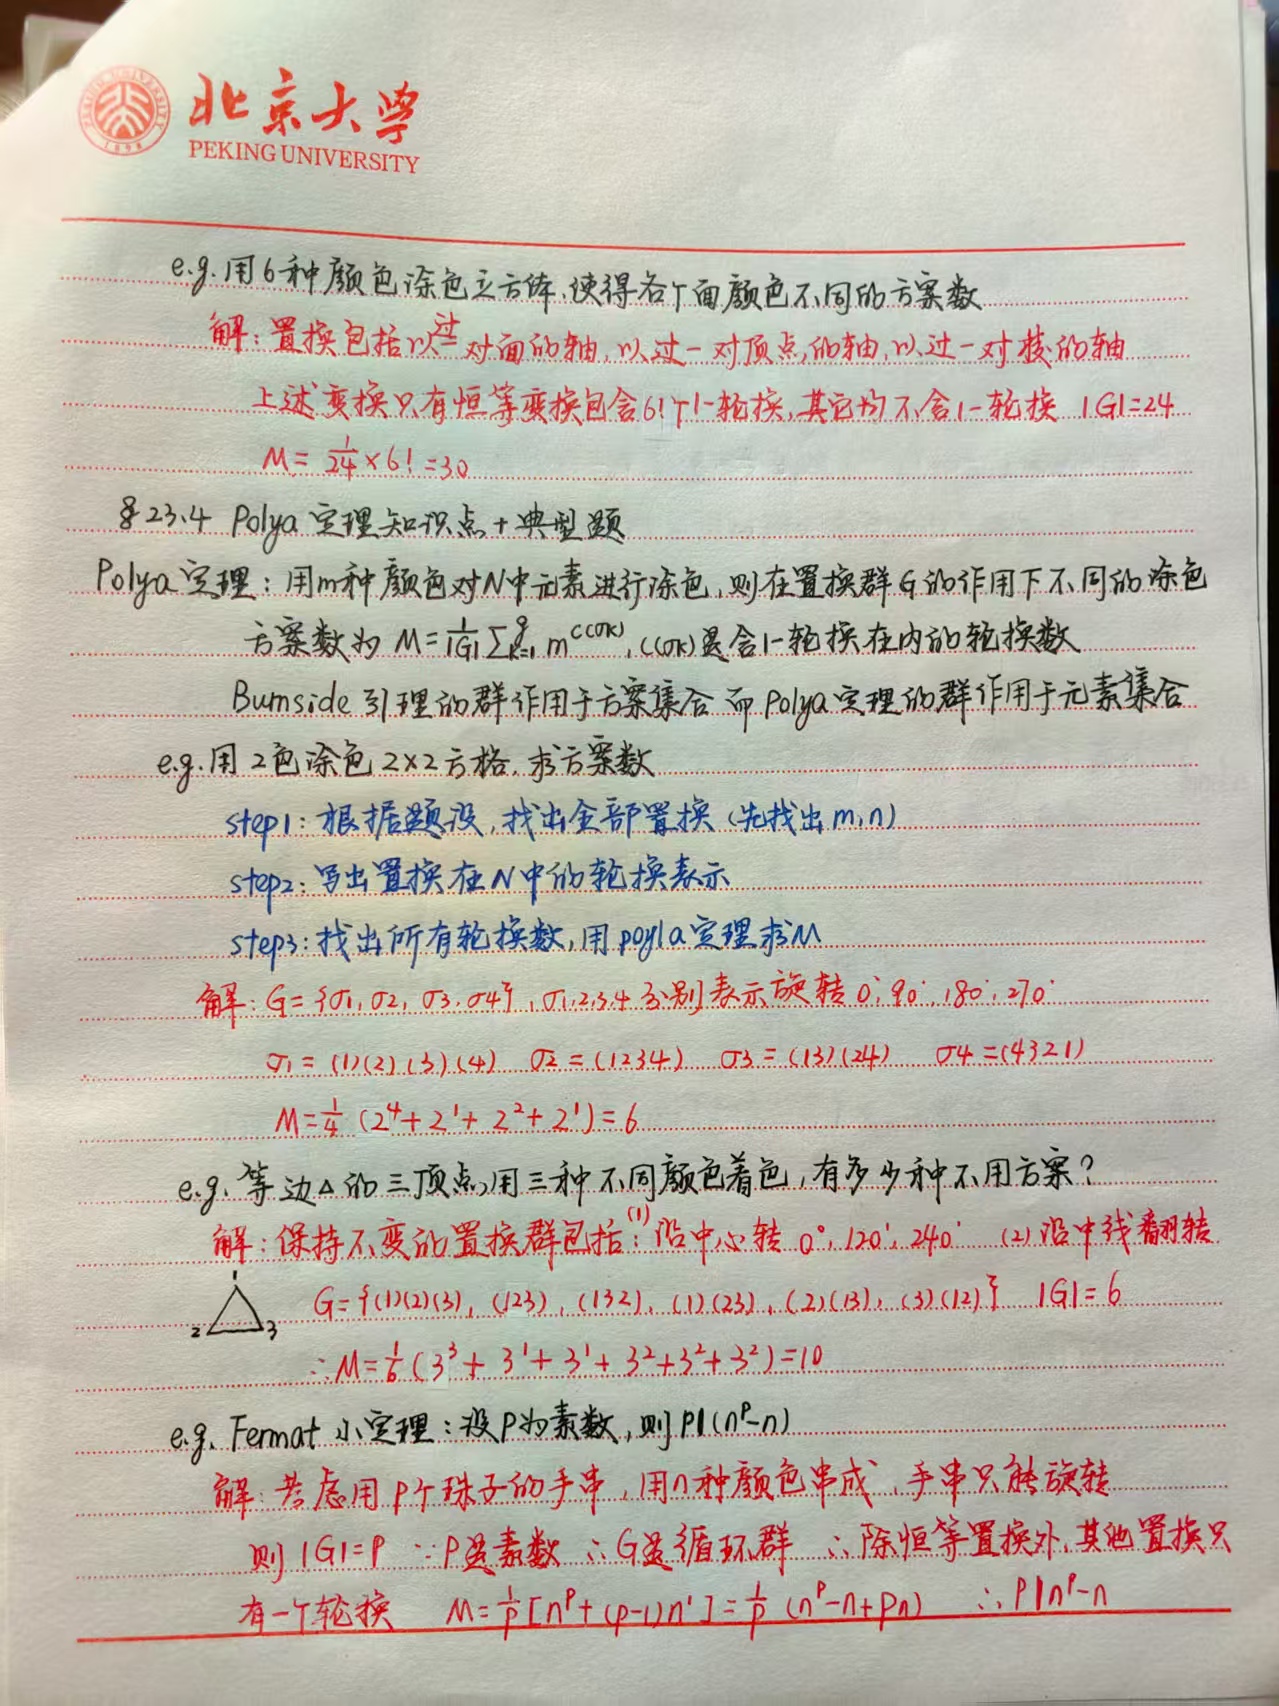 北京大学
PEKING UNIVERSITY
e.g. 用6种颜色涂色立方体,使得各个面颜色不同的方案数
解:置换包括以过一对面的轴,以过一对顶点的轴,以过一对棱的轴
上述变换只有恒等变换包含6!个1-轮换,其它均不含1-轮换 |G|=24
M= 1/24 ×6! =30
§23.4 Polya 定理知识点+典型题
Polya定理:用m种颜色对N中元素进行涂色,则在置换群G的作用下不同的涂色
方案数为 M=1/|G| ∑_{k=1}^{g} m^{c(σk)}, c(σk)是含1-轮换在内的轮换数
Burnside引理的群作用于方案集合而Polya定理的群作用于元素集合
e.g.用2色涂色2×2方格,求方案数
step1:根据题设,找出全部置换(先找出m,n)
step2:写出置换在N中的轮换表示
step3:找出所有轮换数,用poyla定理求M
解:G={σ1, σ2, σ3, σ4}, σ1,2,3,4分别表示旋转0°, 90°, 180°, 270°
σ1=(1)(2)(3)(4) σ2=(1234) σ3=(13)(24) σ4=(4321)
M=1/4 (2^4+2^1+2^2+2^1)=6
e.g. 等边△的三顶点,用三种不同颜色着色,有多少种不用方案?
解:保持不变的置换群包括:(1)沿中心转0°, 120°, 240° (2)沿中线翻转
1
2 3
G={(1)(2)(3), (123), (132), (1)(23), (2)(13), (3)(12)} |G|=6
∴M=1/6(3^3+3^1+3^1+3^2+3^2+3^2)=10
e.g. Fermat 小定理:设P为素数,则P|(n^p-n)
解:考虑用P个珠子的手串,用n种颜色串成,手串只能旋转
则|G|=P ∵P是素数 ∴G是循环群 ∴除恒等置换外,其他置换只
有一个轮换 M=1/p[n^p+(p-1)n^1]=1/p (n^p-n+pn) ∴P|n^p-n